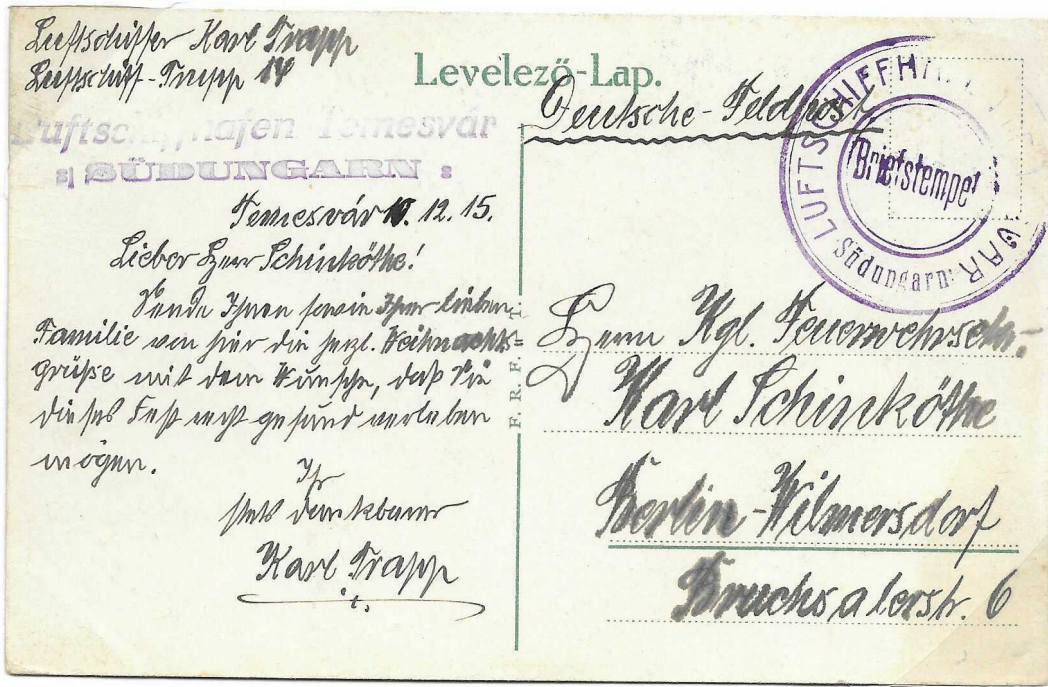 Luftschiffer Karl Trapp
Luftschiff-Trupp 14
Luftschiffhafen Temesvár
SÜDUNGARN
Temesvár 10.12.15.
Lieber Herr Schinköthe!
Sende Ihnen sowie Ihrer lieben
Familie von hier die herzl. Weihnachts-
grüße mit dem Wunsche, daß Sie
dieses Fest recht gesund verleben
mögen.
Ihr
stets dankbarer
Karl Trapp
Levelező-Lap.
Deutsche-Feldpost
LUFTSCHIFFH VAR
Briefstempel
Südungarn
F. R. F.
Herrn Kgl. Feuerwehrsekr.
Karl Schinköthe
Berlin-Wilmersdorf
Bruchsalerstr. 6